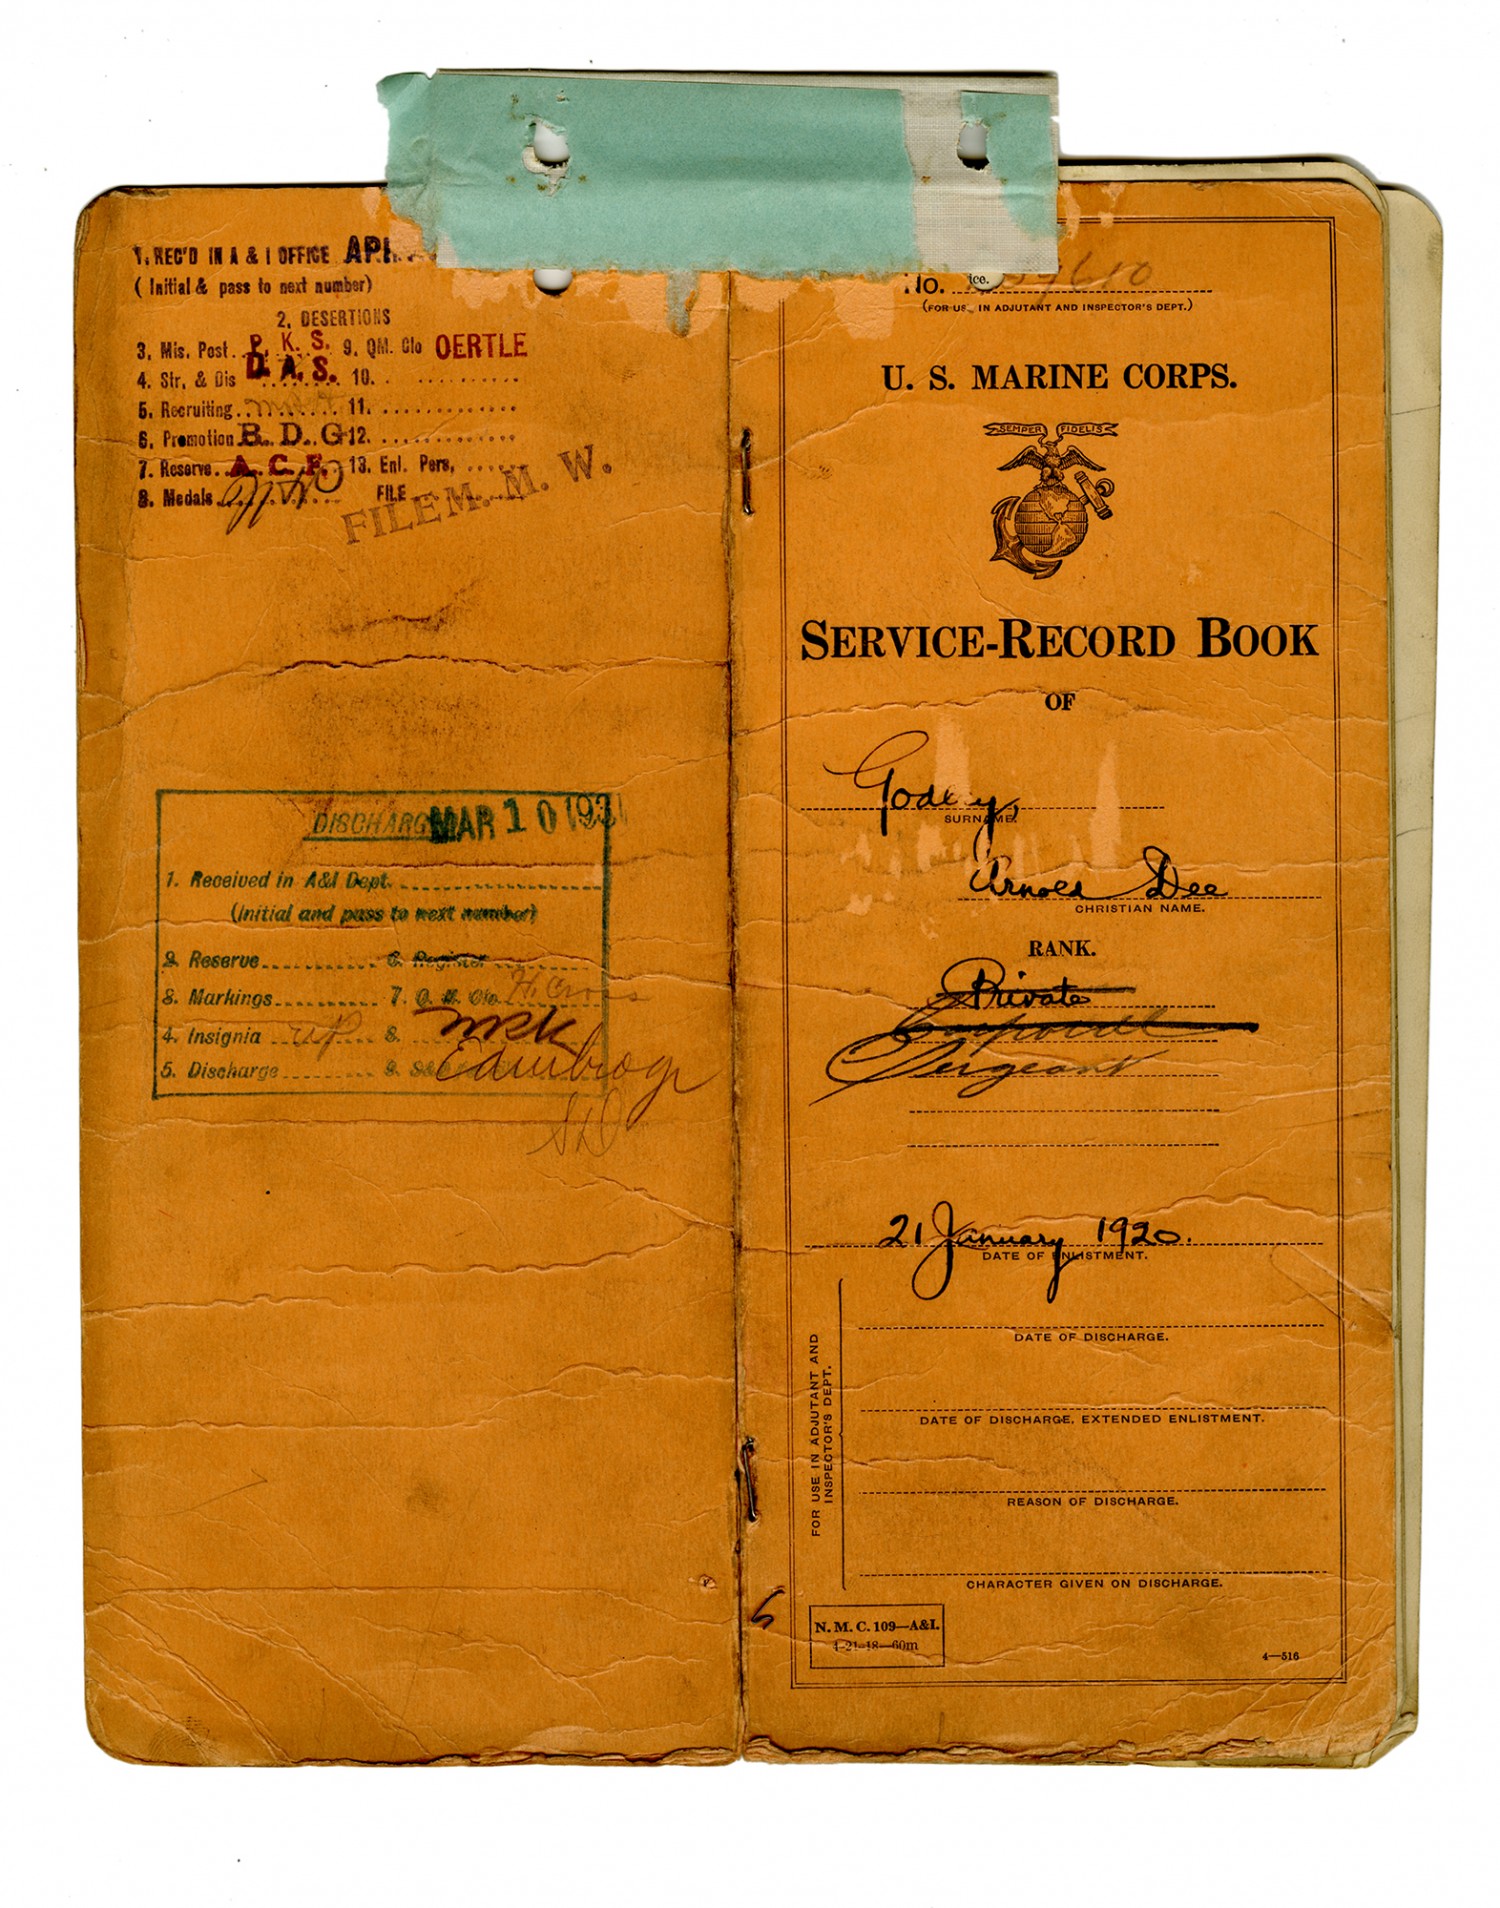 1. REC'D IN A & I OFFICE APR.
( Initial & pass to next number)
2. DESERTIONS
3. Mis. Post. P. K. S. 9. QM. Clo OERTLE
4. Str. & Dis D. A. S. 10.
5. Recruiting 11.
6. Promotion B. D. G 12.
7. Reserve A. C. F. 13. Enl. Pers,
8. Medals FILE
FILE M. M. W.
DISCHARGE MAR 10 1931
1. Received in A&I Dept.
(Initial and pass to next number)
2. Reserve 6. Register
3. Markings 7. Q. M. Clo. H. Cross
4. Insignia 8.
5. Discharge 9.
No.
(FOR USE IN ADJUTANT AND INSPECTOR'S DEPT.)
U. S. MARINE CORPS.
SEMPER FIDELIS
SERVICE-RECORD BOOK
OF
Godbey,
SURNAME.
Arnold Dee
CHRISTIAN NAME.
RANK.
Private
Corporal
Sergeant
21 January 1920.
DATE OF ENLISTMENT.
DATE OF DISCHARGE.
DATE OF DISCHARGE, EXTENDED ENLISTMENT.
REASON OF DISCHARGE.
CHARACTER GIVEN ON DISCHARGE.
FOR USE IN ADJUTANT AND
INSPECTOR'S DEPT.
5
N. M. C. 109—A&I.
4-21-18—60m
4—516